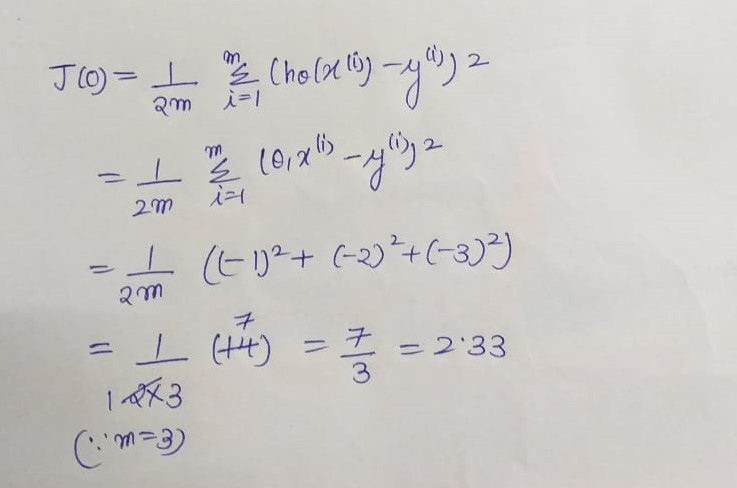 J(0) = 1/2m m Σ i=1 (ho(x⁽ⁱ⁾) - y⁽ⁱ⁾) 2
= 1/2m m Σ i=1 (θ₁x⁽ⁱ⁾ - y⁽ⁱ⁾) 2
= 1/2m ((-1)² + (-2)² + (-3)²)
= 1/1 2×3 (14) 7 = 7/3 = 2.33
(∵ m=3)